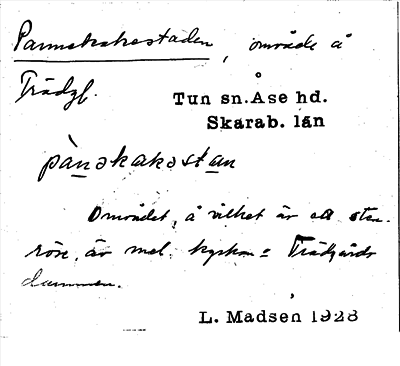 Pannekakestaden, område å
Trädgf.
Tun sn. Åse hd.
Skarab. län
pànəkakəstan
Området, å vilket är ett sten-
röse, är mel. kyrkan o Trädgårds
dammen.
L. Madsen 1928